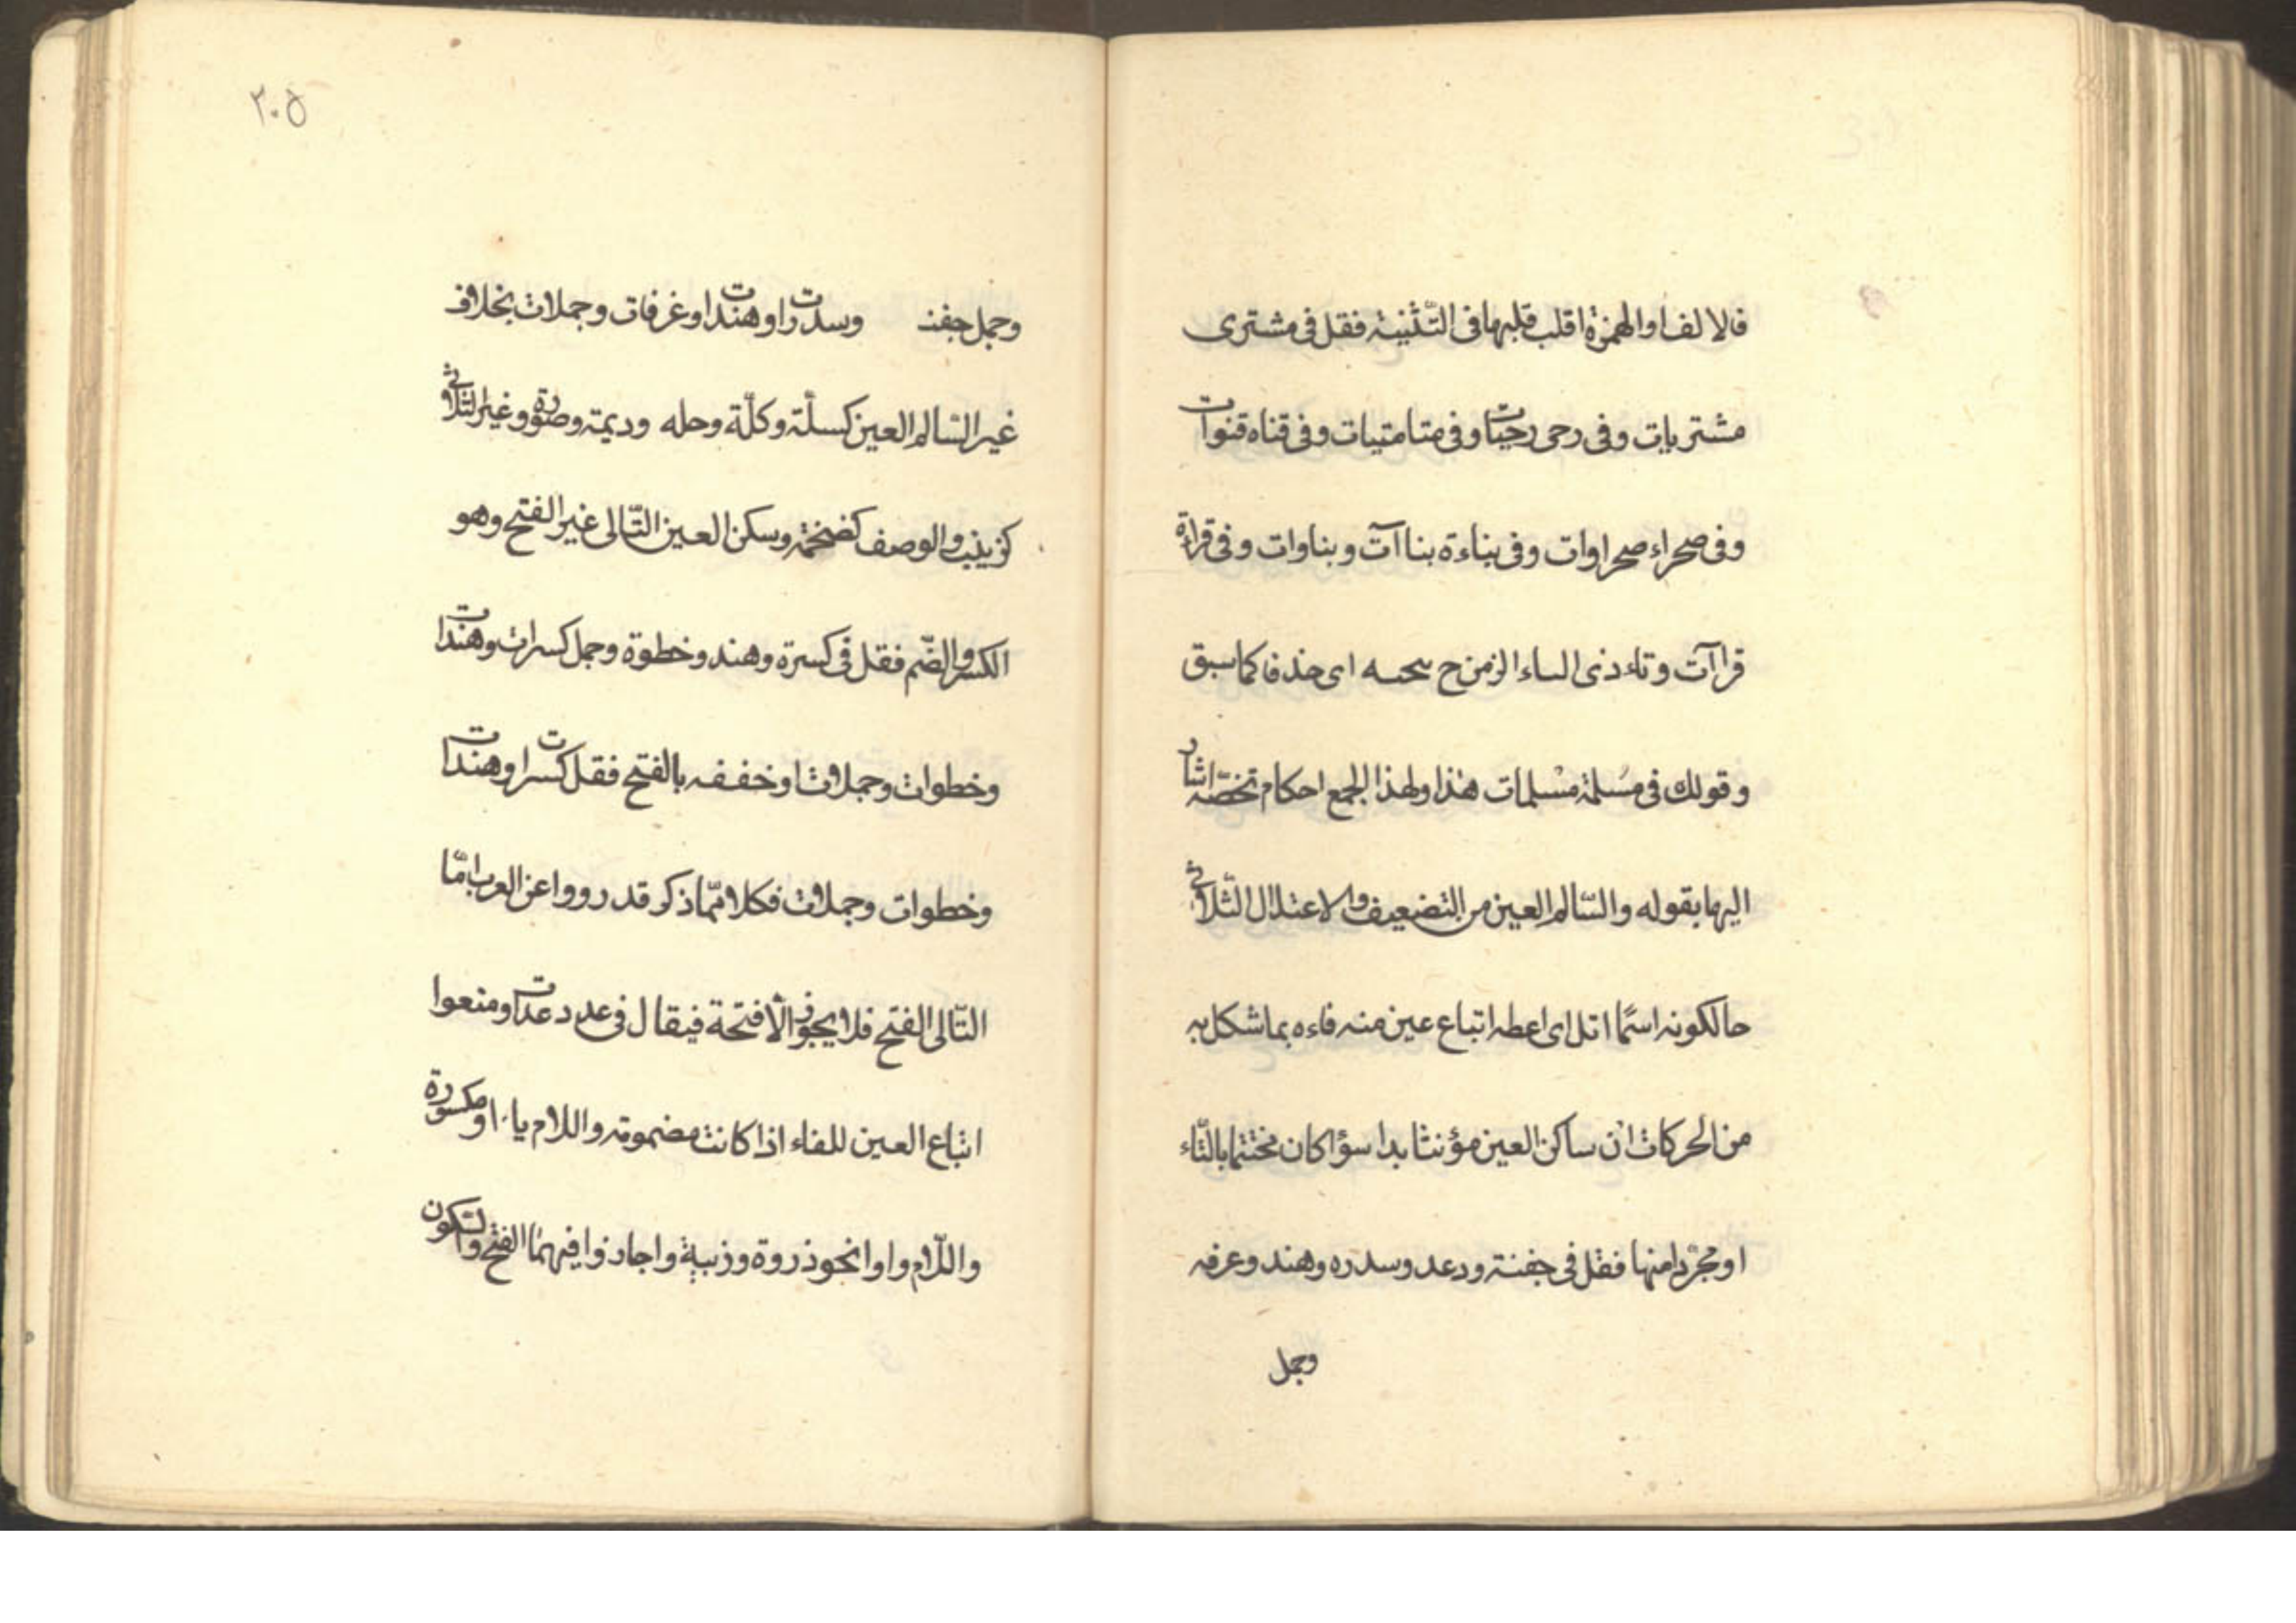 فالالف او الهمزة اقلب قلبها فى التّثنية فقل فى مشترى
مشتريات وفى رحى رحيات وفى متا متيات وفى قناه قنوات
وفى صحراء صحراوات وفى بناءة بناآت وبناوات وفى قراءة
قراآت وتاء ذى الزمن اى حذفا كما سبق
وقولك فى مسلمة مسلمات هذا ولهذا الجمع احكام تخصّه اشار
اليها بقوله والسّالم العين من التضعيف والاعتدال الثّلاثى
حالكونه اسمًا اتل اى اعطه اتباع عين منه فاءه بما شكل به
من الحركات ان ساكن العين مؤنثا بدا سؤاكان مختتما بالتّاء
او مجرّدا منها فقل فى جفنة ودعد وسدره وهند وعرفه
وجمل
٢٠٥
وجمل جفنـ وسدرات او هندات او غرفات وجملات بخلاف
غير السّالم العين كسلّة وكلّة وحله وديمة وصورة وغير الثلاثى
كزينب والوصف كضخمة وسكن العين التّالى غير الفتح وهو
الكسر والضّم فقل فى كسرة وهند وخطوة وجمل كسرات وهندات
وخطوات وجملات او خففه بالفتح فقل كسرات وهندات
وخطوات وجملات فكلا ممّا ذكر قد رووا عن العرب امّا
التّالى الفتح فلا يجوز الّا فتحة فيقال فى دعد دعدات ومنعوا
اتباع العين للفاء اذا كانت مضمومة واللام ياء او مكسورة
واللّام واوا نحو ذروة وزبية واجازوا فيهما الفتح والسّكون